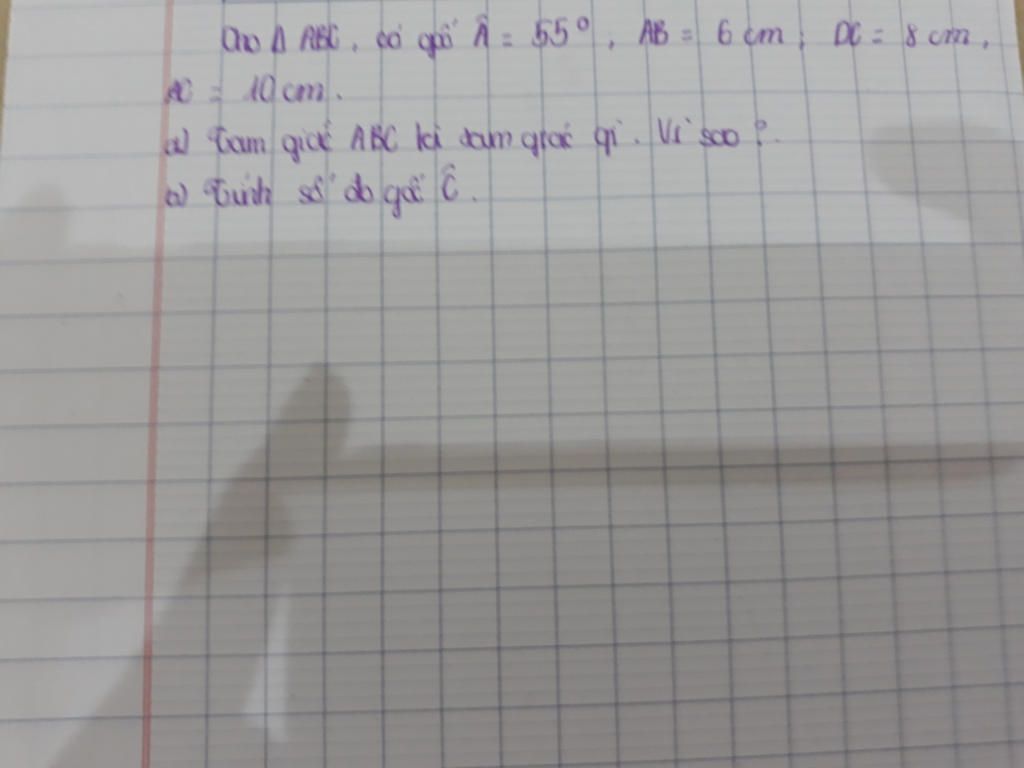 Cho Δ ABC, có góc Â = 55°, AB = 6 cm; BC = 8 cm,
AC = 10 cm.
a) Tam giác ABC là tam giác gì. Vì sao?
b) Tính số đo góc Ĉ.